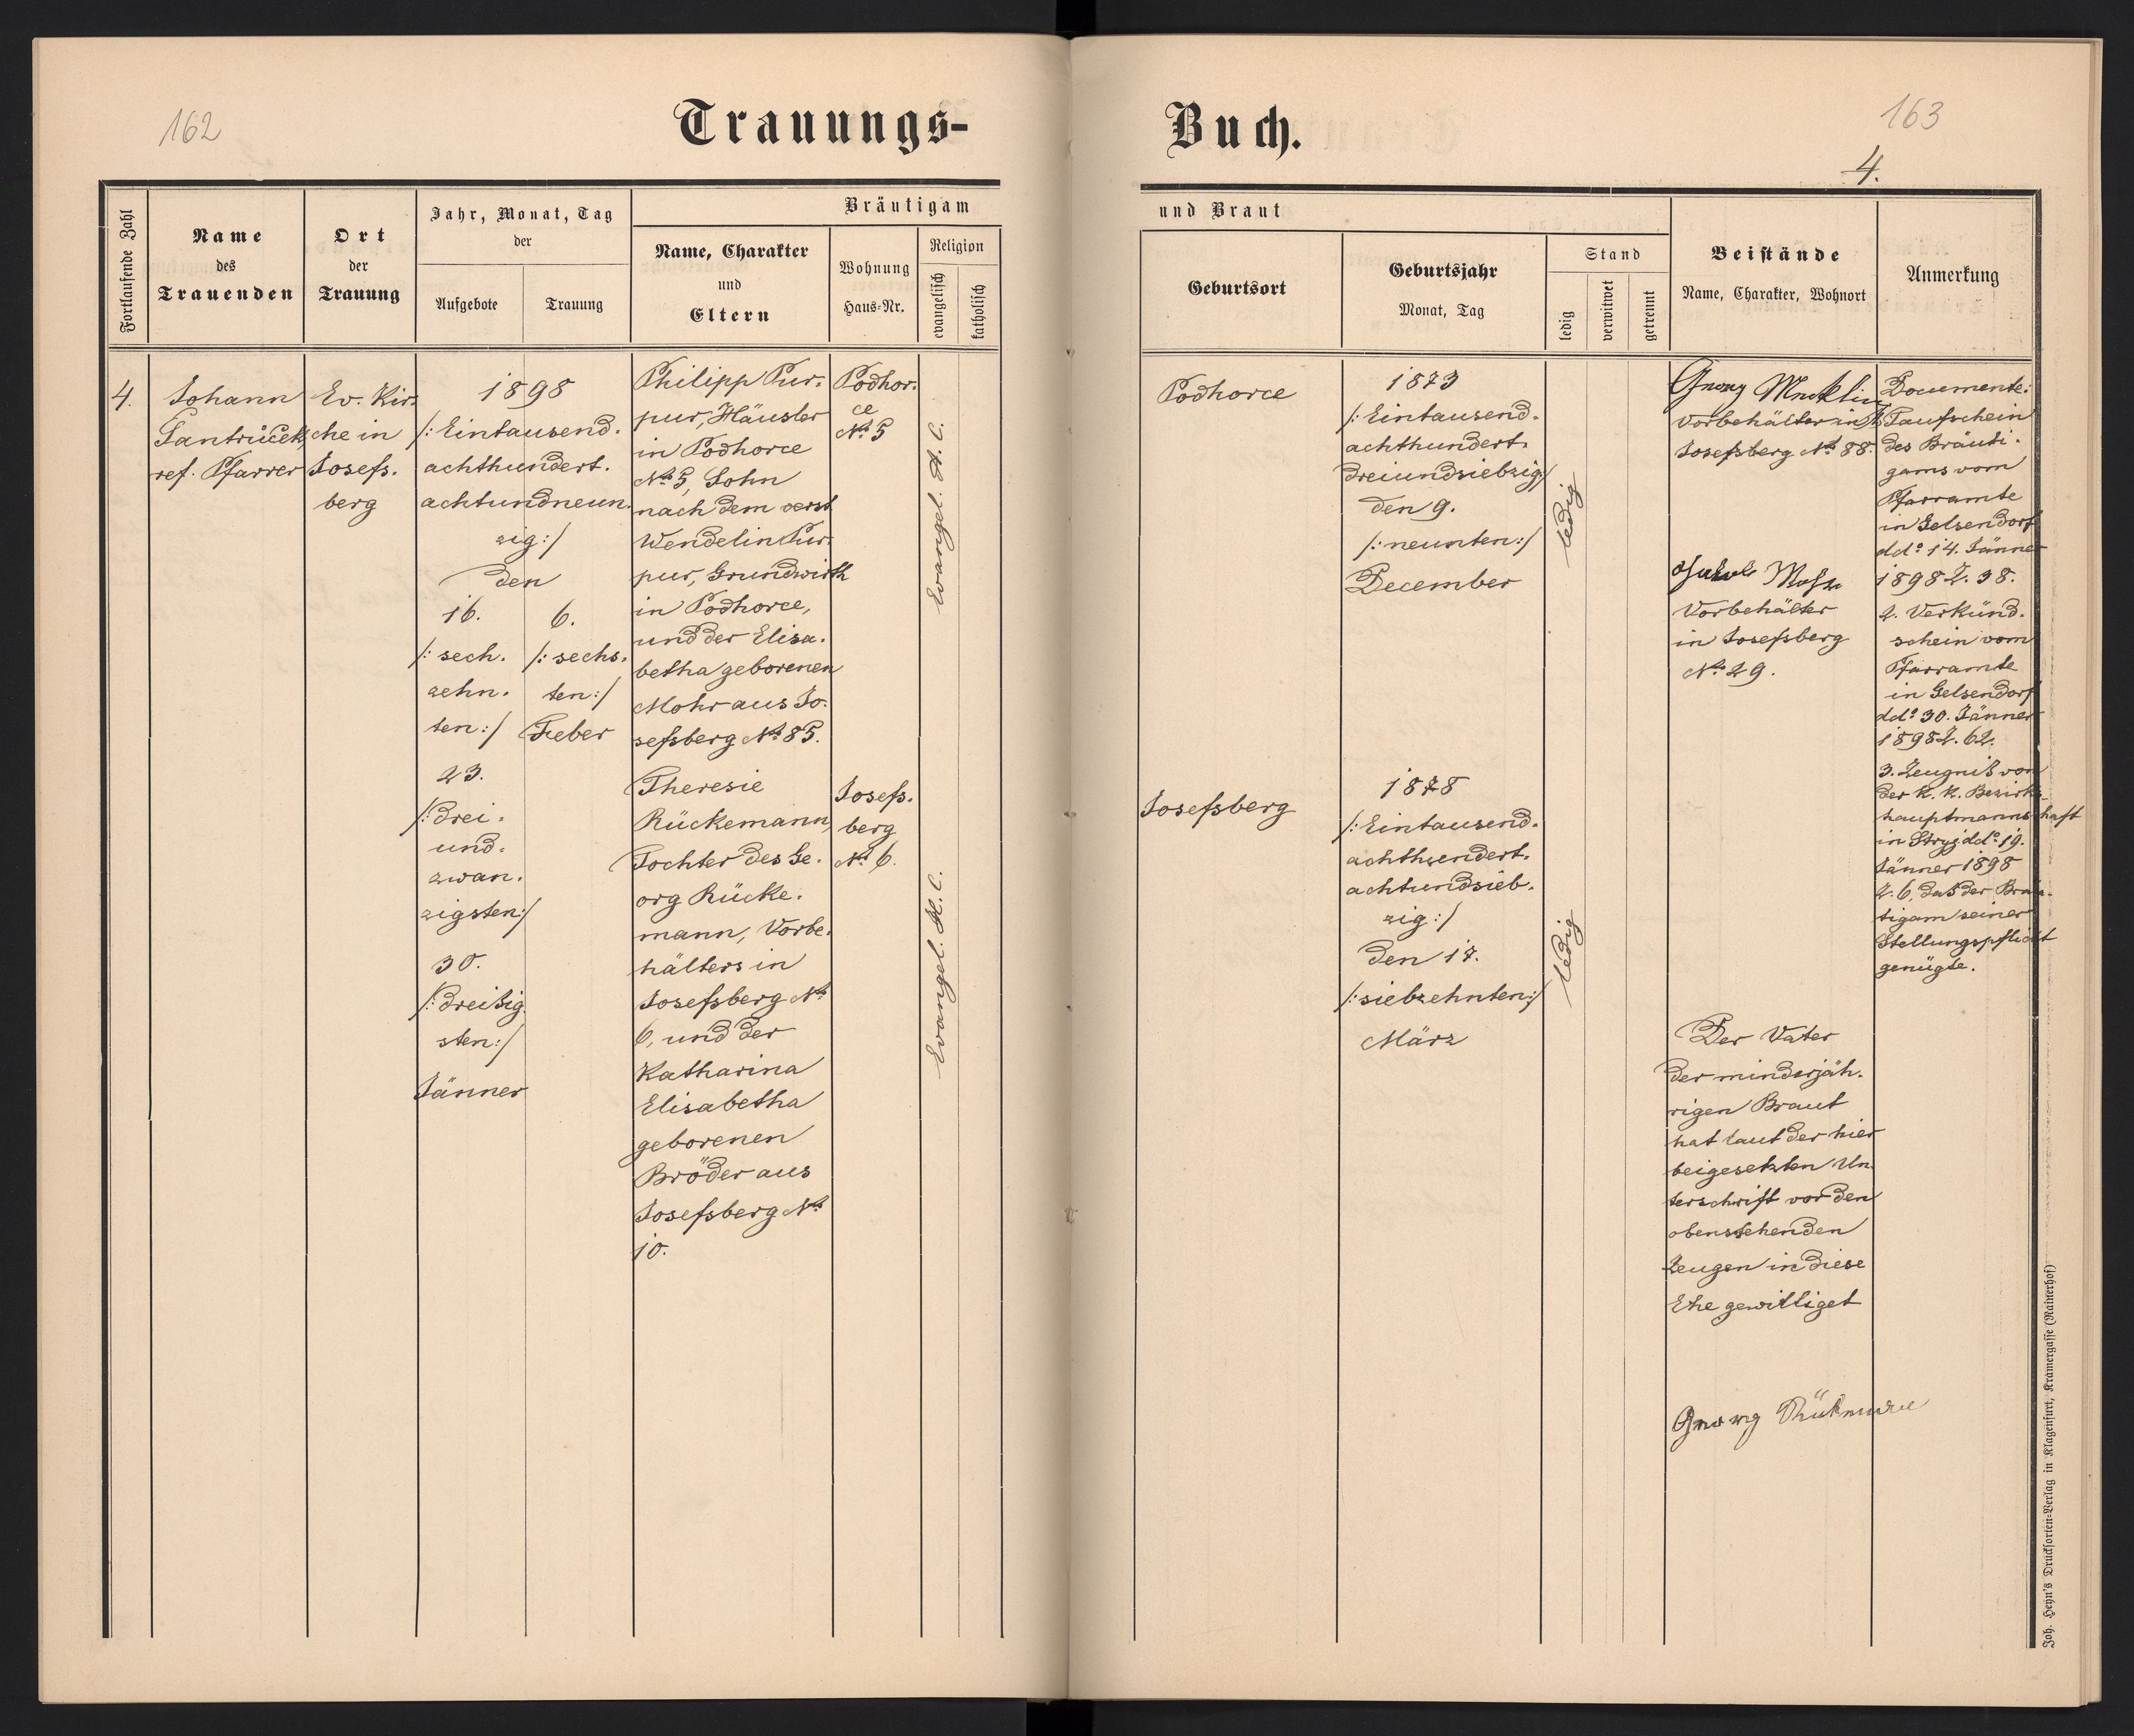 162
Trauungs-
Fortlaufende Zahl
Name
des
Trauenden
Ort
der
Trauung
Jahr, Monat, Tag
der
Aufgebote
Trauung
Bräutigam
Name, Charakter
und
Eltern
Wohnung
Haus=Nr.
Religion
evangelisch
katholisch
4.
Johann
ref. Pfarrer
Ev. Kir-
che in
Josefs-
berg
1898
/: Eintausend-
achthundert-
achtundneun-
zig :/
den
16.
/: sech-
zehn-
ten :/
23.
/: drei-
und-
zwan-
zigsten :/
30.
/: dreißig-
sten :/
Jänner
6.
/: sechs-
ten :/
Feber
Philipp Pur-
pur, Häusler
in Podhorce
No 5, Sohn
nach dem verst.
Wendelin Pur-
pur, Grundwirth
in Podhorce,
und der Elisa-
betha geborenen
Mohr aus Jo-
sefsberg No 85.
Podhor-
ce
No 5
Evangel. A. C.
Theresie
Rückemann,
Tochter des Ge-
org Rücke-
mann, Vorbe-
hälters in
Josefsberg No
6, und der
Katharina
Elisabetha
geborenen
Bröder aus
Josefsberg No
10.
Josefs-
berg
No 6.
Evangel. H. C.
163
Buch.
4.
und Braut
Geburtsort
Geburtsjahr
Monat, Tag
Stand
ledig
verwitwet
getrennt
Beistände
Name, Charakter, Wohnort
Anmerkung
Podhorce
1873
/: Eintausend-
achthundert-
dreiundsiebzig :/
den 9.
/: neunten :/
December
ledig
Josefsberg
1878
/: Eintausend-
achthundert-
achtundsieb-
zig :/
den 17.
/: siebzehnten :/
März
ledig
Georg
Vorbehälter in
Josefsberg No 88.
Jakob
Vorbehälter
in Josefsberg
No 29.
Der Vater
der minderjäh-
rigen Braut
hat laut der hier
beigesetzten Un-
terschrift vor den
obenstehenden
Zeugen in diese
Ehe gewilliget
Georg
Documente:
Taufschein
des Bräuti-
gams vom
Pfarramte
in Gelsendorf
ddo 14. Jänner
1898 Z. 38.
2. Verkünd-
schein vom
Pfarramte
in Gelsendorf
ddo 30. Jänner
1898 Z. 62.
3. Zeugniß von
der k. k. Bezirks-
hauptmannschaft
in Stryj ddo 19.
Jänner 1898
Z. 6, daß der Bräu-
tigam seiner
Stellungspflicht
genügte.
Joh. Heyn's Drucksorten=Verlag in Klagenfurt, Kramergasse (Rainerhof)